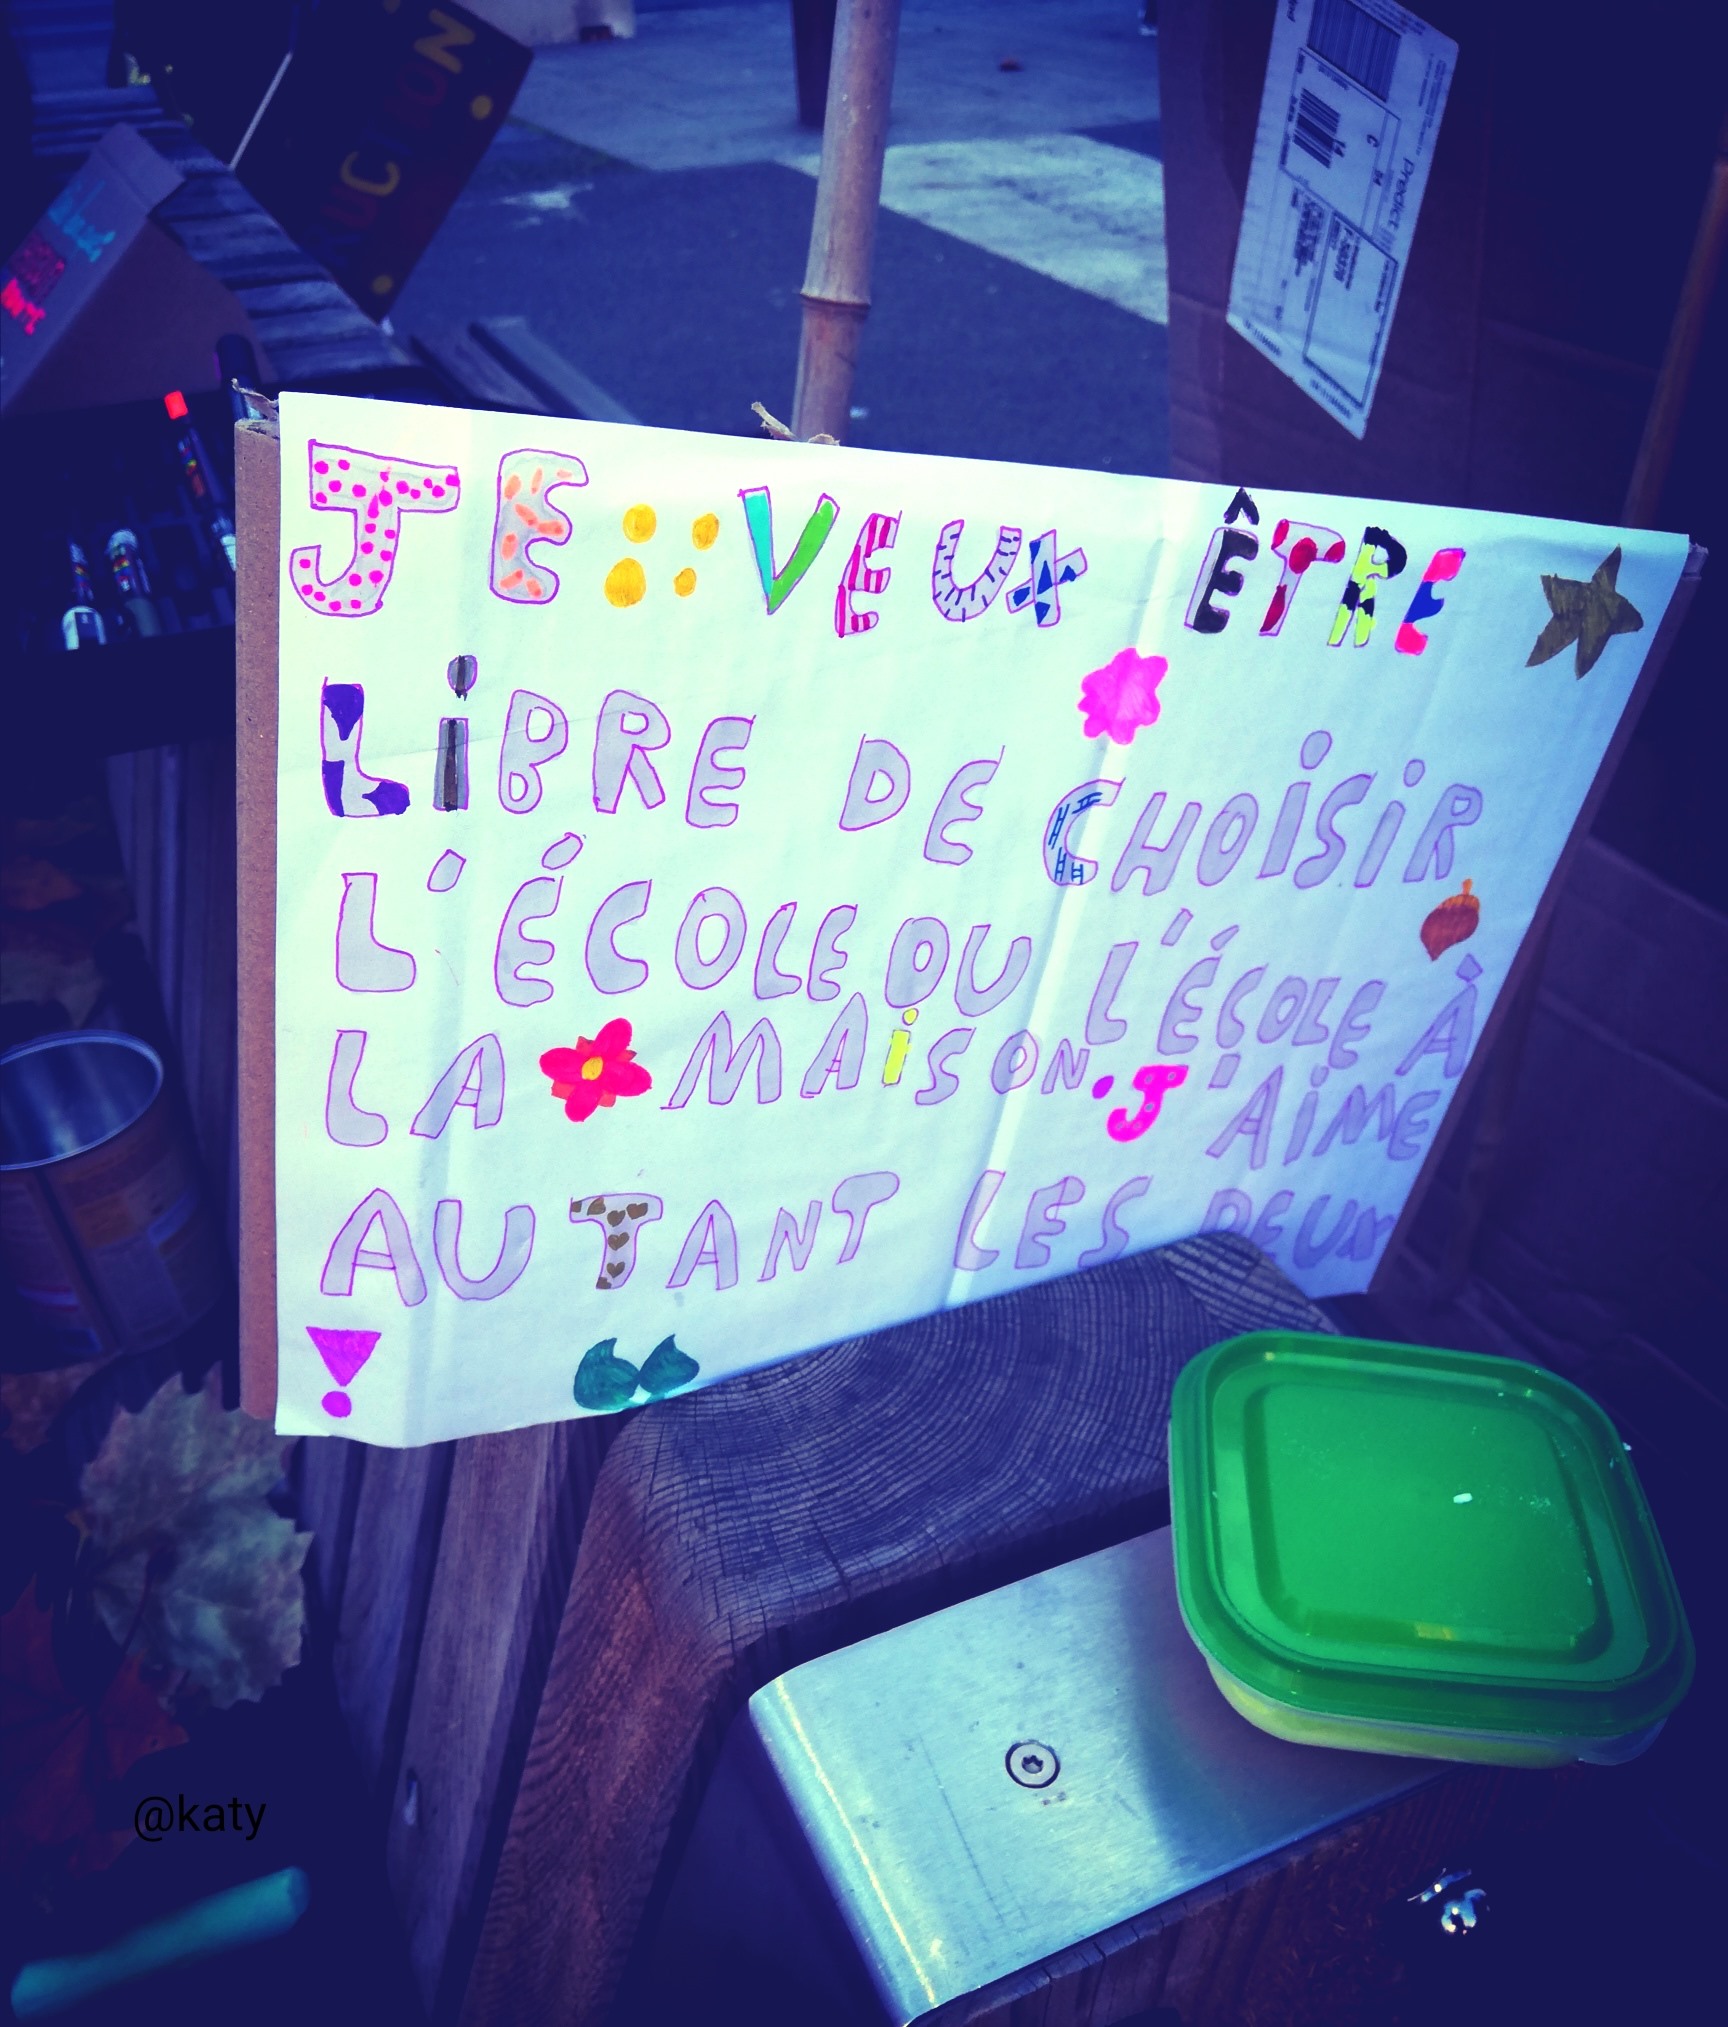 UCION
JE VEUX ÊTRE
LiBRE DE CHOiSiR
L'ÉCOLE OU L'ÉCOLE À
LA MAiSON. J'AiME
AUTANT LES DEUX
!
Predict
@katy